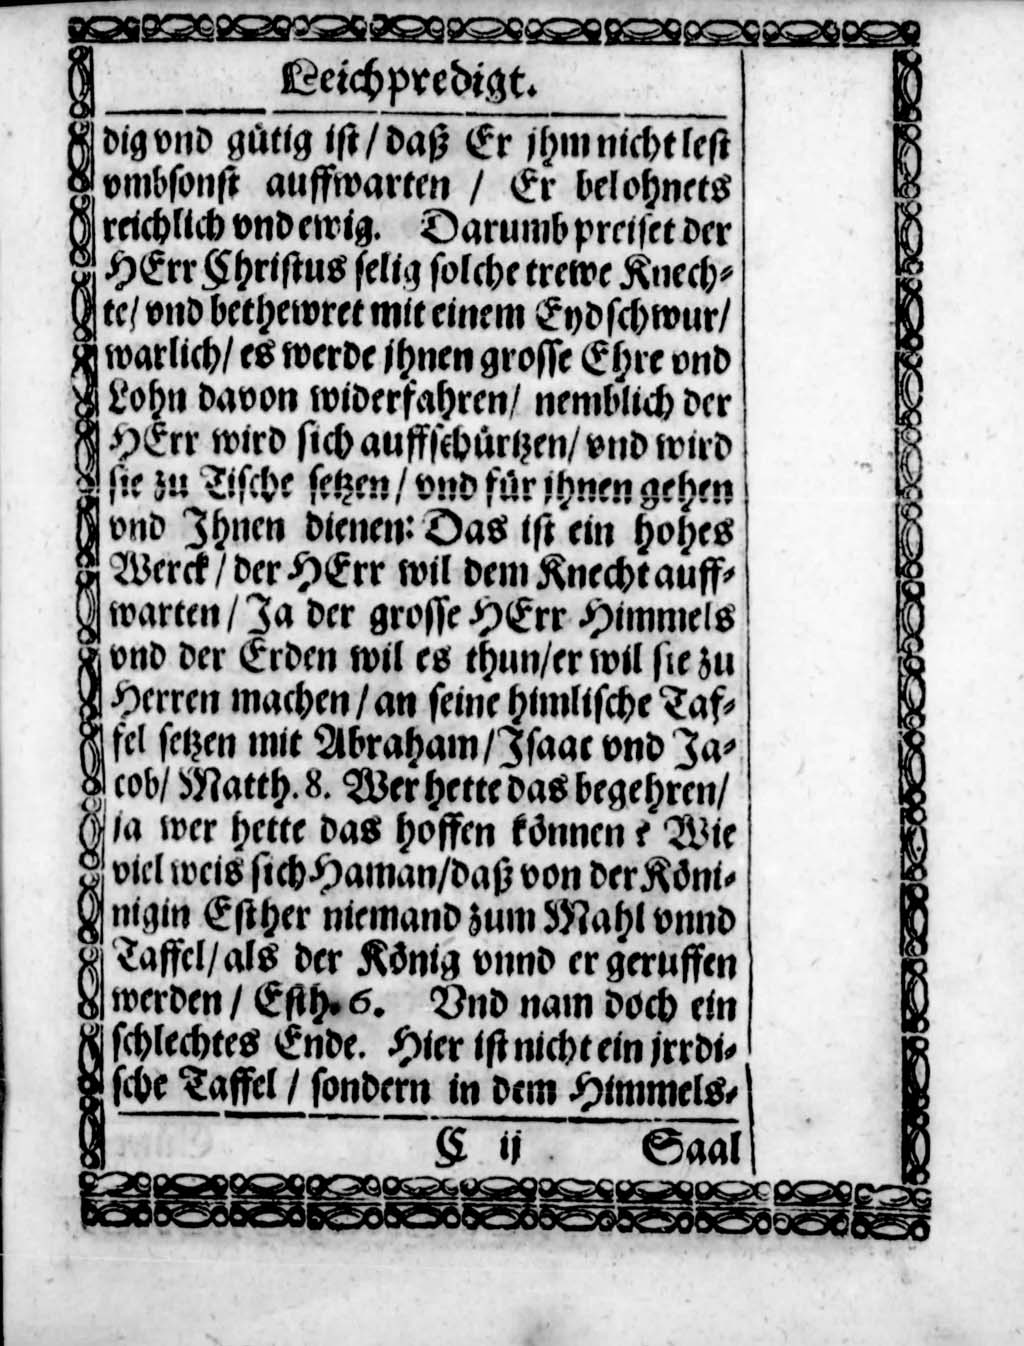 Leichpredigt.
dig vnd gütig ist / daß Er jhm nicht lest
vmbsonst auffwarten / Er belohnets
reichlich vnd ewig. Darumb preiset der
HErr Christus selig solche trewe Knech-
te / vnd bethewret mit einem Eydschwur /
warlich / es werde jhnen grosse Ehre vnd
Lohn davon widerfahren / nemblich der
HErr wird sich auffschürtzen / vnd wird
sie zu Tische setzen / vnd für jhnen gehen
vnd Jhnen dienen: Das ist ein hohes
Werck / der HErr wil dem Knecht auff-
warten / Ja der grosse HErr Himmels
vnd der Erden wil es thun / er wil sie zu
Herren machen / an seine himlische Taf-
fel setzen mit Abraham / Isaac vnd Ja-
cob / Matth. 8. Wer hette das begehren /
ja wer hette das hoffen können? Wie
viel weis sich Haman / daß von der Köni-
nigin Esther niemand zum Mahl vnnd
Taffel / als der König vnnd er geruffen
werden / Esth. 6. Vnd nam doch ein
schlechtes Ende. Hier ist nicht ein jrrdi-
sche Taffel / sondern in dem Himmels-
C ij Saal